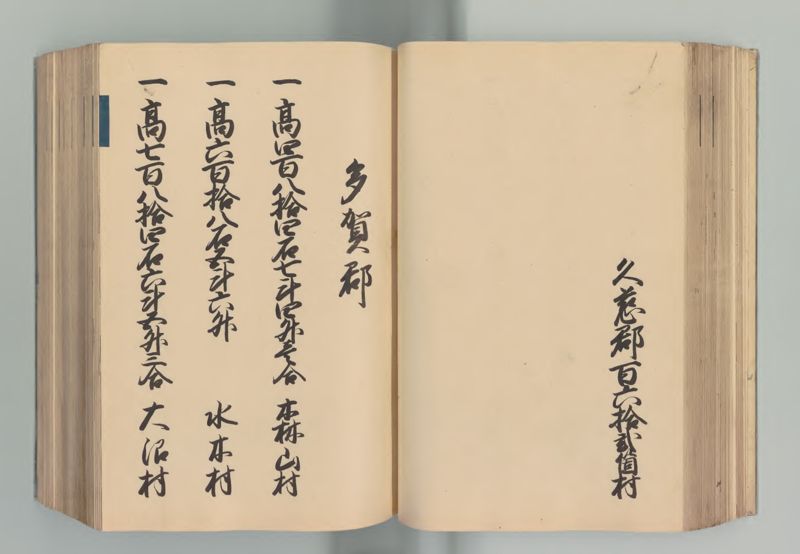 久慈郡百六拾弐箇村
多賀郡
一高四百八拾四石七斗四升壱合 森山村
一高六百拾八石五斗六升 水木村
一高七百八拾四石六斗五升三合 大沼村